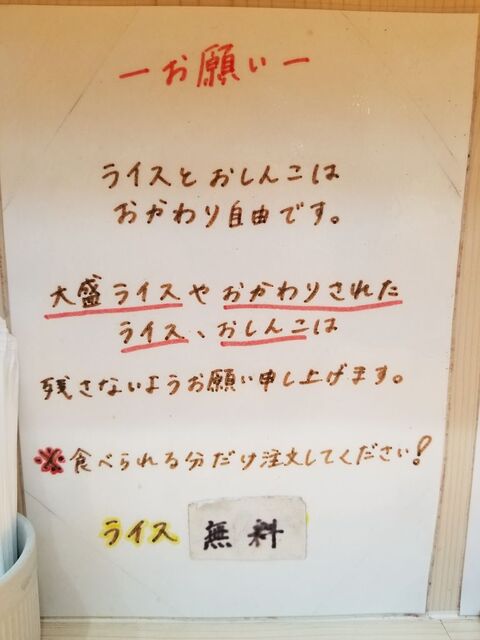 ーお願いー
ライスとおしんこは
おかわり自由です。
大盛ライスやおかわりされた
ライス、おしんこは
残さないようお願い申し上げます。
※食べられる分だけ注文してください!
ライス 無料